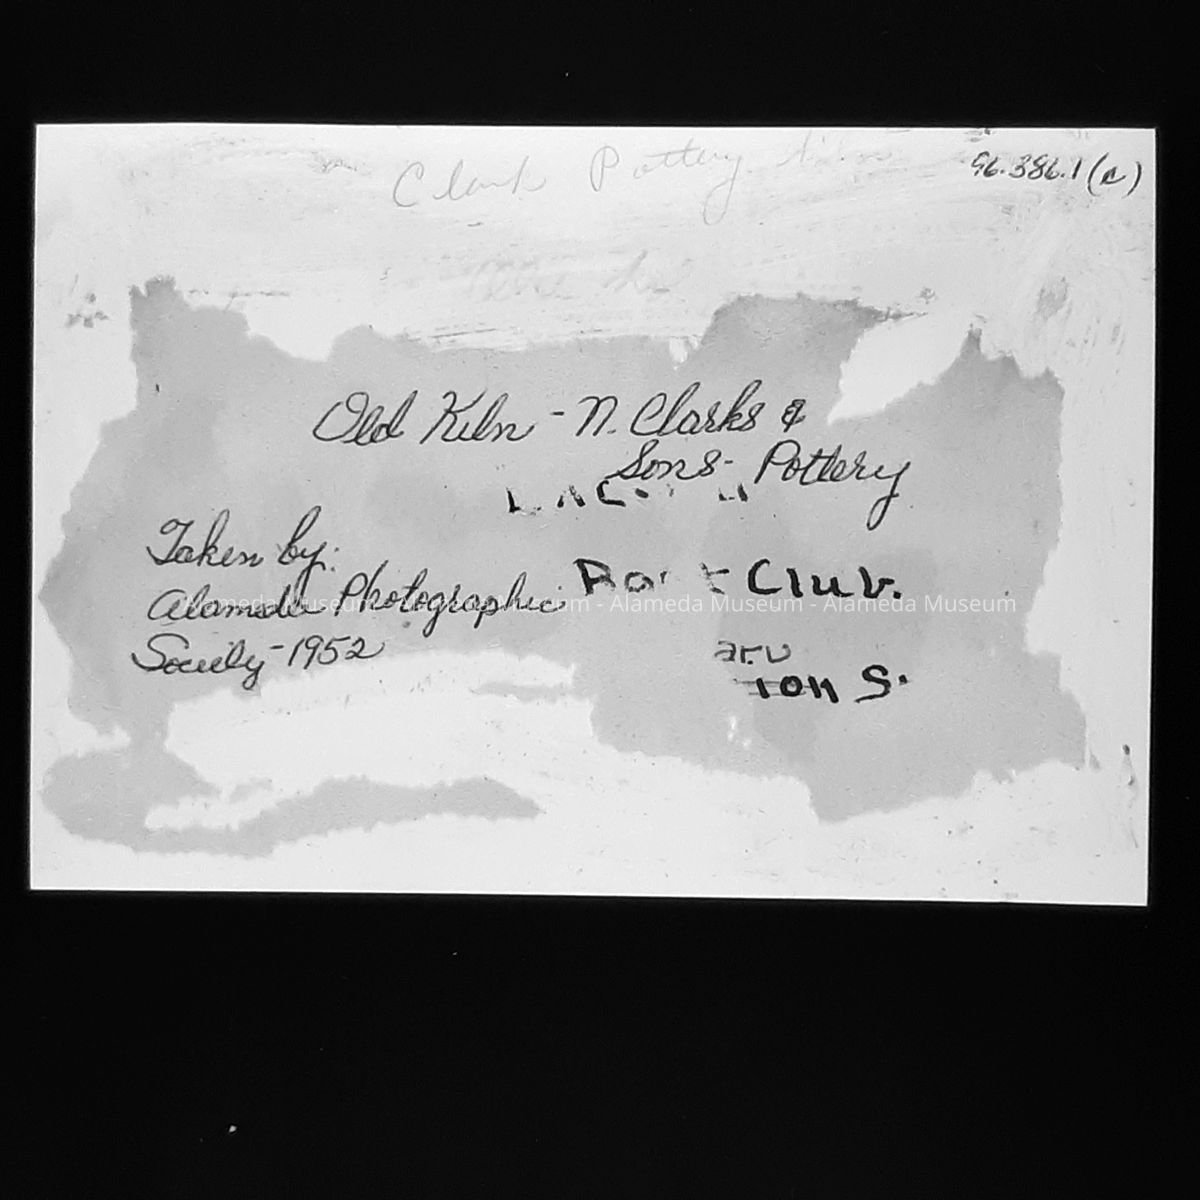 Clark Pottery
96.386.1(a)
Old Kiln - N. Clarks &
Sons - Pottery
Taken by:
Alameda Photographic
Society - 1952
Club.
ion S.
Alameda Museum - Alameda Museum - Alameda Museum - Alameda Museum